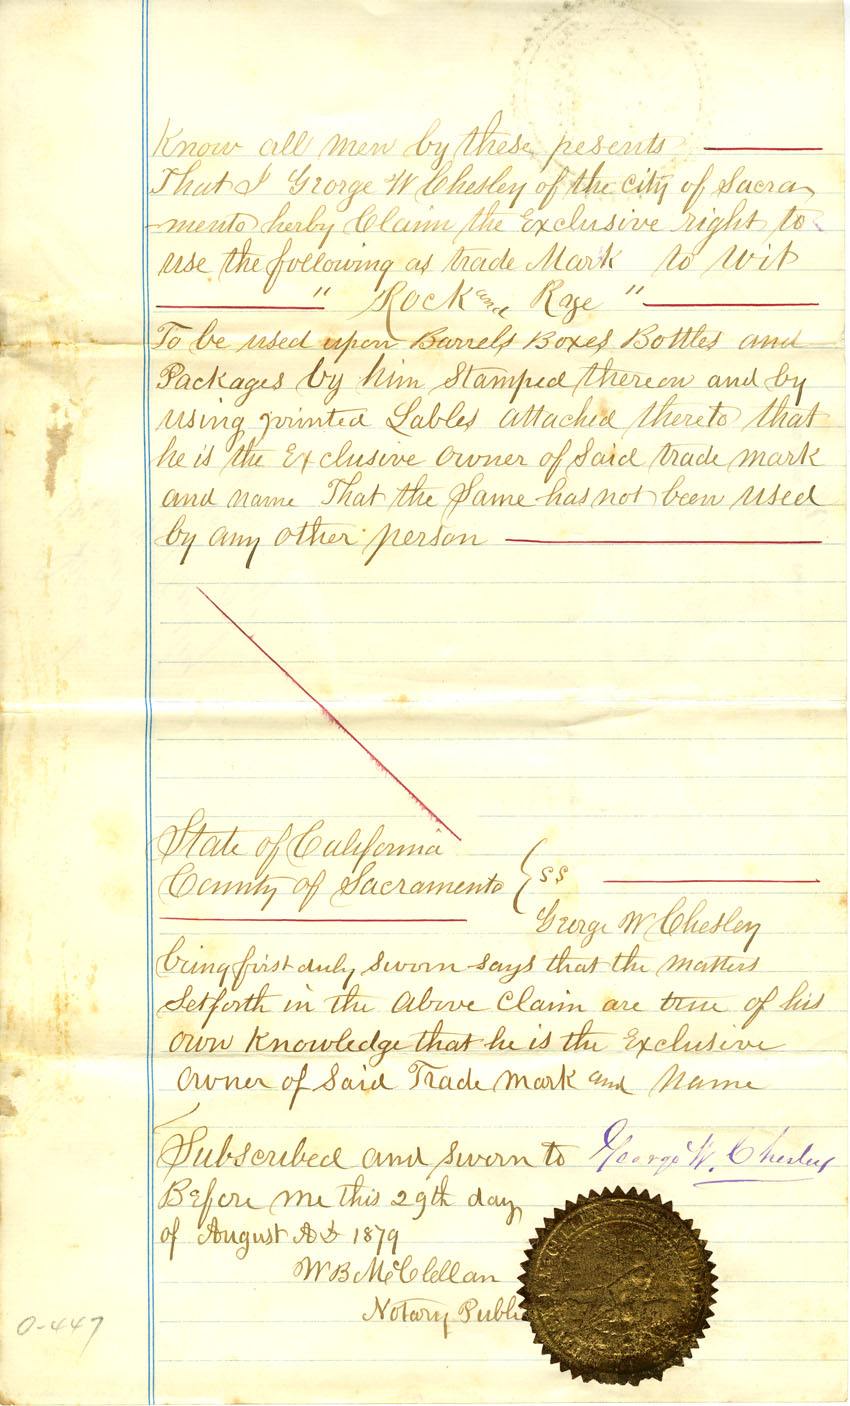 Know all men by these pesents
That I George W Chesley of the city of Sacra
mento herby Claim the Exclusive right to
use the following as trade Mark to wit
" Rock and Rye "
To be used upon Barrels Boxes Bottles and
Packages by him Stamped thereon and by
using printed Lables attached thereto that
he is the Exclusive owner of Said trade mark
and name That the Same has not been used
by any other person
State of California
County of Sacramento } ss
George W Chesley
being first duly sworn says that the matters
Setforth in the above Claim are true of his
own Knowledge that he is the Exclusive
owner of Said Trade mark and name
Subscribed and sworn to George W. Chesley
Before me this 29th day
of August AD 1879
W B McClellan
Notary Public
0-447